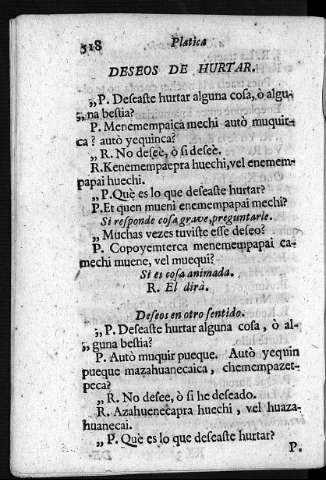 518 Platica
DESEOS DE HURTAR.
„P. Deseaste hurtar alguna cosa, ò algu-
„na bestia?
P. Menemempaica mechi autò muquir-
ca? autò yequinca?
„ R. No deseè, ò sì deseè.
R. Kenemempaepra huechi, vel enemem-
papai huechi.
„P. Què es lo que deseaste hurtar?
P. Et quen mueni enemempapai mechi?
Si responde cosa grave, preguntarle.
„ Muchas vezes tuviste esse deseo?
P. Copoyemterca menemempapai ca-
mechi muene, vel muequi?
Si es cosa animada.
R. El dirà.
Deseos en otro sentido.
„P. Deseaste hurtar alguna cosa, ò al-
„guna bestia?
P. Autò muquir pueque. Autò yequin
pueque mazahuanecaica, chemempazet-
peca?
„ R. No desee, ò si he deseado.
R. Azahuenecapra huechi, vel huaza-
huanecai.
„P. Què es lo que deseaste hurtar?
P.